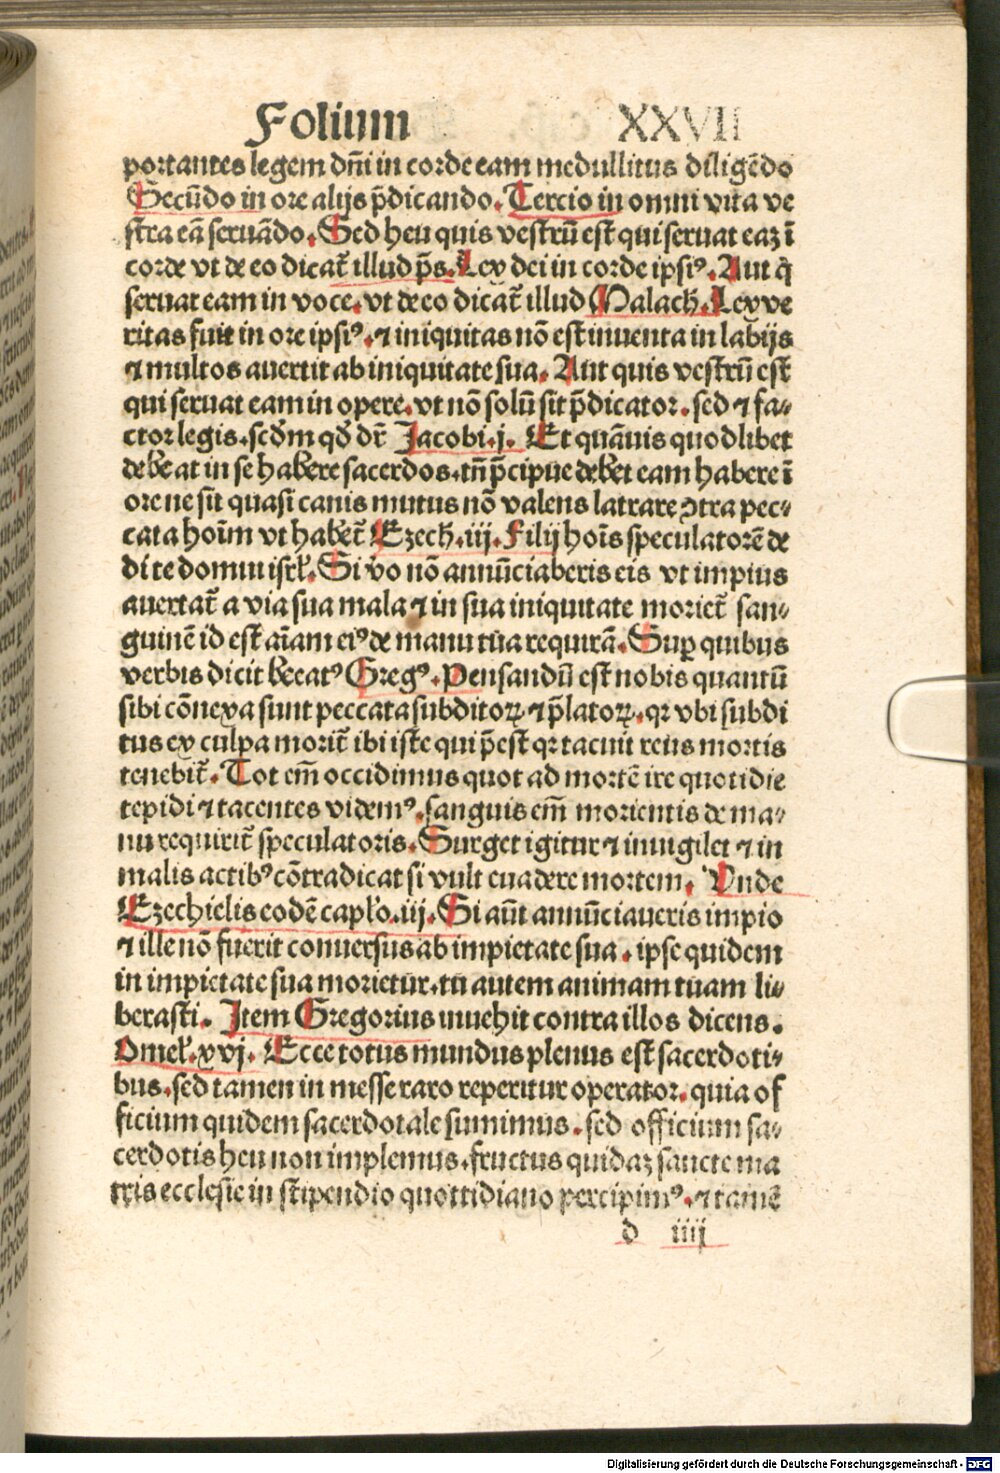 Folium XXVII
portantes legem dñi in corde eam medullitus diligẽdo
Secũdo in ore alijs p̃dicando. Tercio in omni vita ve
stra eã seruãdo. Sed heu quis vestrũ est qui seruat eaz ĩ
corde vt de eo dicat̃ illud p̃s. Lex dei in corde ipsiꝰ. Aut q̃
seruat eam in voce. vt de eo dicat̃ illud Malach. Lex ve
ritas fuit in ore ipsiꝰ. ⁊ iniquitas nõ est inuenta in labijs
⁊ multos auertit ab iniquitate sua. Aut quis vestrũ est
qui seruat eam in opere. vt nõ solũ sit p̃dicator. sed ⁊ fa⸗
ctor legis. scd̃m qd̃ dr̃ Jacobi. j. Et quãuis quodlibet
debeat in se habere sacerdos. tñ p̃cipue debet eam habere ĩ
ore ne sit quasi canis mutus nõ valens latrare ↄtra pec⸗
cata hoĩm vt habet̃ Ezech. iij. Filij hoĩs speculatorẽ de
di te domui isrł. Si ṽo nõ annũciaberis eis vt impius
auertat̃ a via sua mala ⁊ in sua iniquitate moriet̃ san⸗
guinẽ id est aĩam eiꝰ de manu tua requirã. Suꝑ quibus
verbis dicit beatꝰ Gregꝰ. Pensandũ est nobis quantũ
sibi cõnexa sunt peccata subditoꝝ ⁊ p̃latoꝝ. qꝛ vbi subdi
tus ex culpa morit̃ ibi iste qui p̃est qꝛ tacuit reus mortis
tenebit̃. Tot em̃ occidimus quot ad mortẽ ire quotidie
tepidi ⁊ tacentes videmꝰ. sanguis em̃ morientis de ma⸗
nu requirit̃ speculatoris. Surget igitur ⁊ inuigilet ⁊ in
malis actibꝰ cõtradicat si vult euadere mortem. Vnde
Ezechielis eodẽ capło. iij. Si aũt annũciaueris impio
⁊ ille nõ fuerit conuersus ab impietate sua. ipse quidem
in impietate sua morietur. tu autem animam tuam li⸗
berasti. Item Gregorius inuehit contra illos dicens.
Omeł. xvj. Ecce totus mundus plenus est sacerdoti⸗
bus. sed tamen in messe raro reperitur operator. quia of
ficium quidem sacerdotale sumimus. sed officium sa⸗
cerdotis heu non implemus. fructus quidaz sancte ma
tris ecclesie in stipendio quottidiano percipimꝰ. ⁊ tamẽ
d iiij
Digitalisierung gefördert durch die Deutsche Forschungsgemeinschaft - DFG